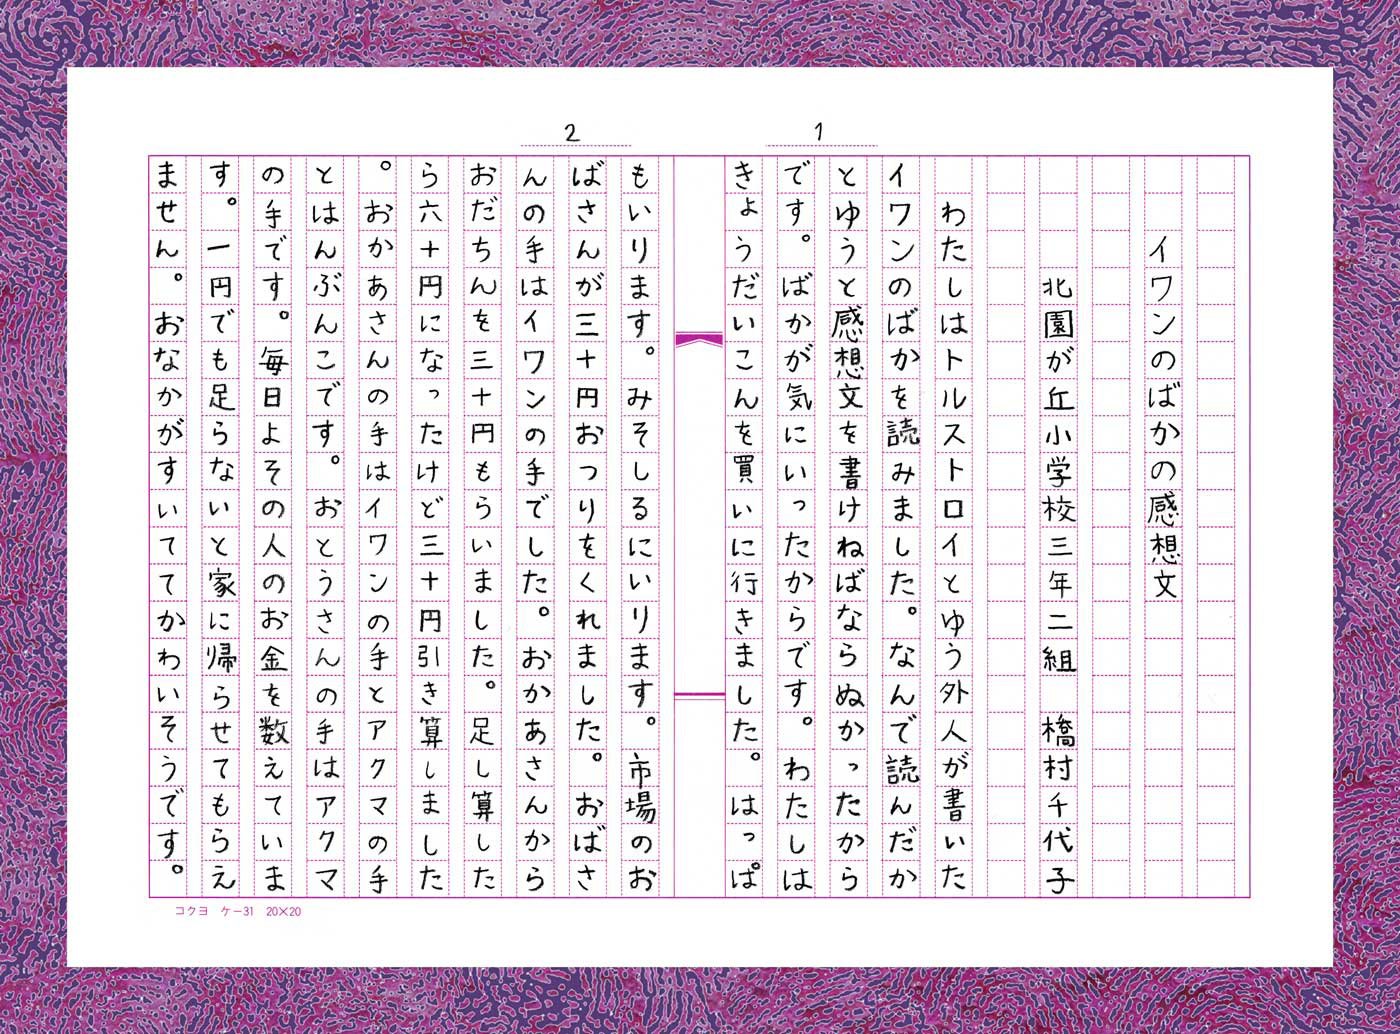 1
イワンのばかの感想文
北園が丘小学校三年二組 橋村千代子
わたしはトルストロイとゆう外人が書いた
イワンのばかを読みました。なんで読んだか
とゆうと感想文を書けねばならぬかったから
です。ばかが気にいったからです。わたしは
きょうだいこんを買いに行きました。はっぱ
2
もいります。みそしるにいります。市場のお
ばさんが三十円おつりをくれました。おばさ
んの手はイワンの手でした。おかあさんから
おだちんを三十円もらいました。足し算した
ら六十円になったけど三十円引き算しました
。おかあさんの手はイワンの手とアクマの手
とはんぶんこです。おとうさんの手はアクマ
の手です。毎日よその人のお金を数えていま
す。一円でも足らないと家に帰らせてもらえ
ません。おなかがすいててかわいそうです。
コクヨ ケー31 20×20